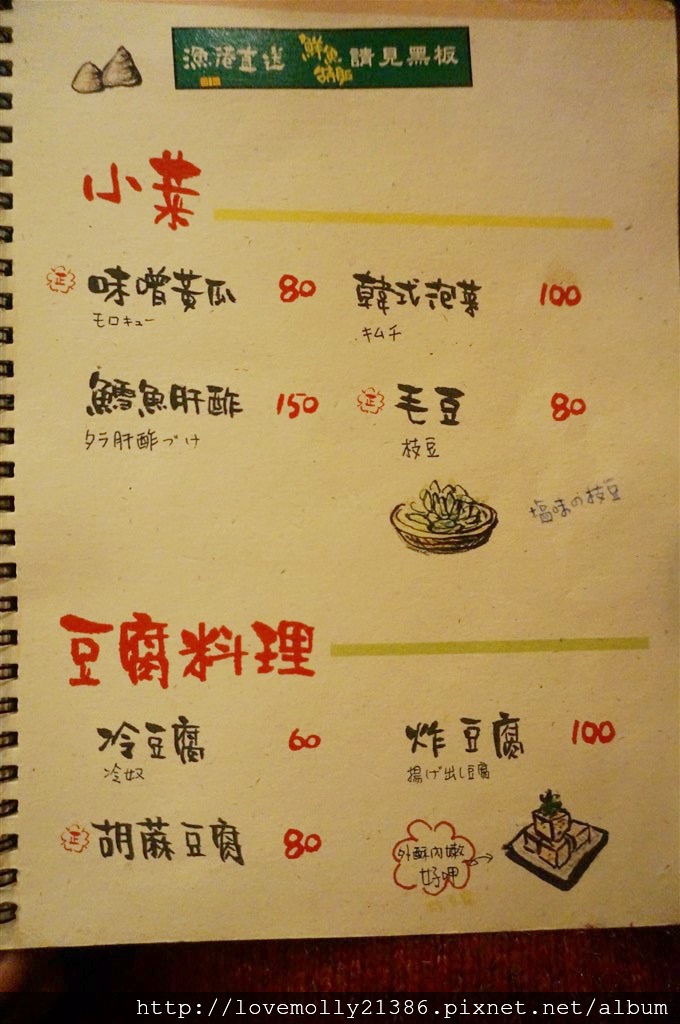 漁港直送 鮮魚 請見黑板
小菜
正 味噌黃瓜 80 韓式泡菜 100
モロキュー キムチ
鱈魚肝酢 150 正 毛豆 80
タラ肝酢づけ 枝豆
塩味の枝豆
豆腐料理
冷豆腐 60 炸豆腐 100
冷奴 揚げ出し豆腐
正 胡蔴豆腐 80
外酥內嫩
好呷
http://lovemolly21386.pixnet.net/album